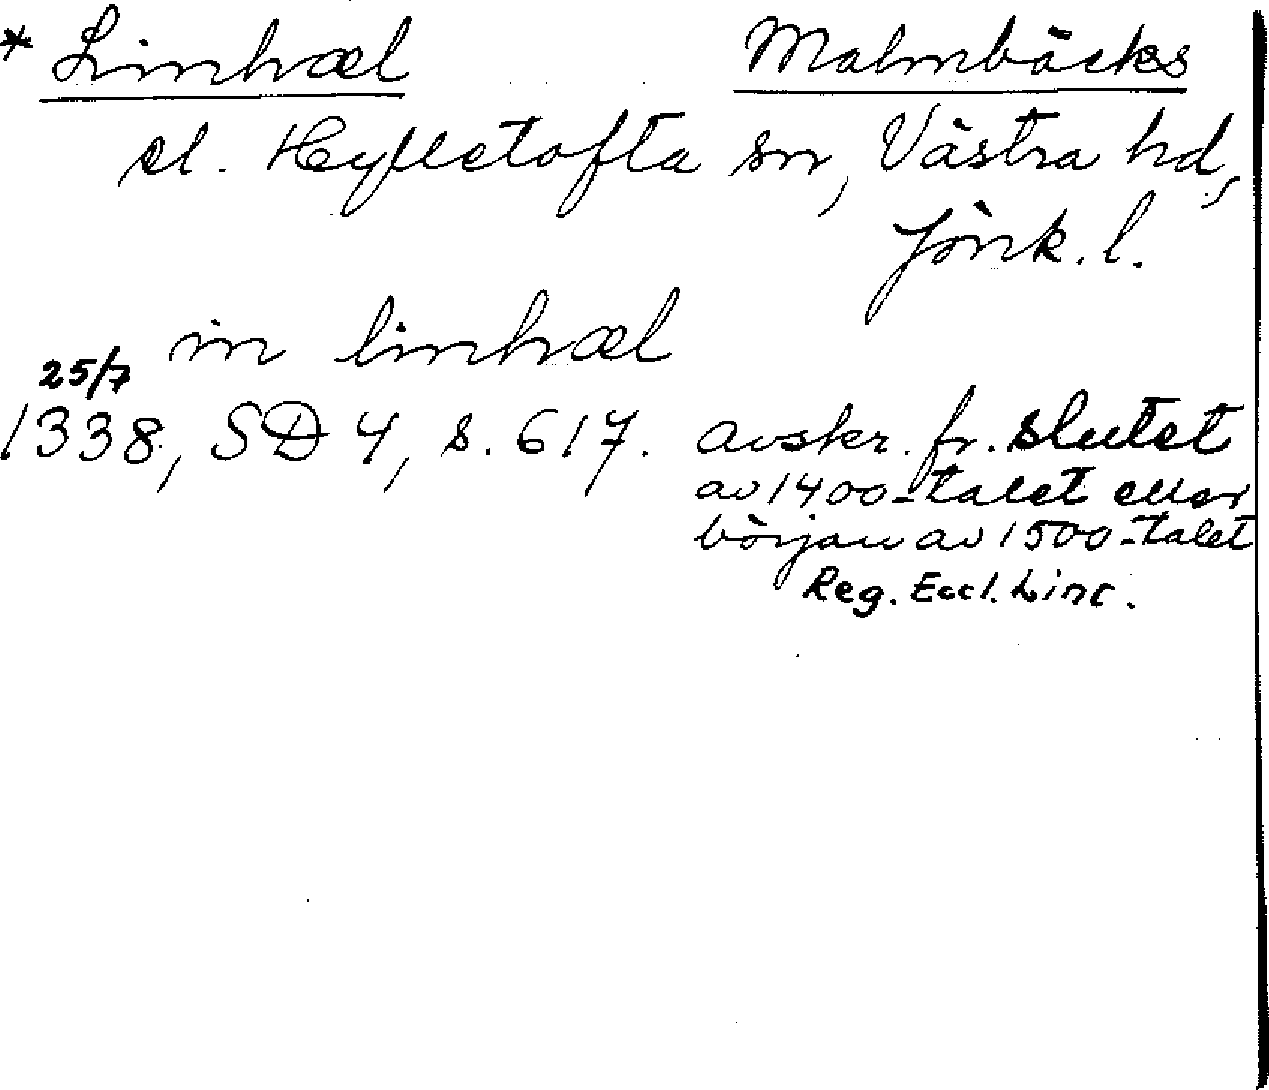 * Linhæl Malmbäcks
el. Hylletofta sn, Västra hd,
Jönk. l.
in linhæl
25/7
1338, SD 4, s. 617. avskr. fr. slutet
av 1400-talet eller
början av 1500-talet
Reg. Eccl. Linc.